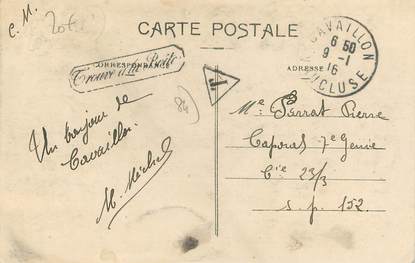 C. M.
20f
CARTE POSTALE
CORRESPONDANCE
Trouvé à la Boîte
ADRESSE
CAVAILLON
6 50
9 - 1
16
VAUCLUSE
T
84
Un bonjour de
Cavaillon
M. Michel
Mr Perrot Pierre
Caporal 7e Genie
Cie 23/3
S. p. 152.